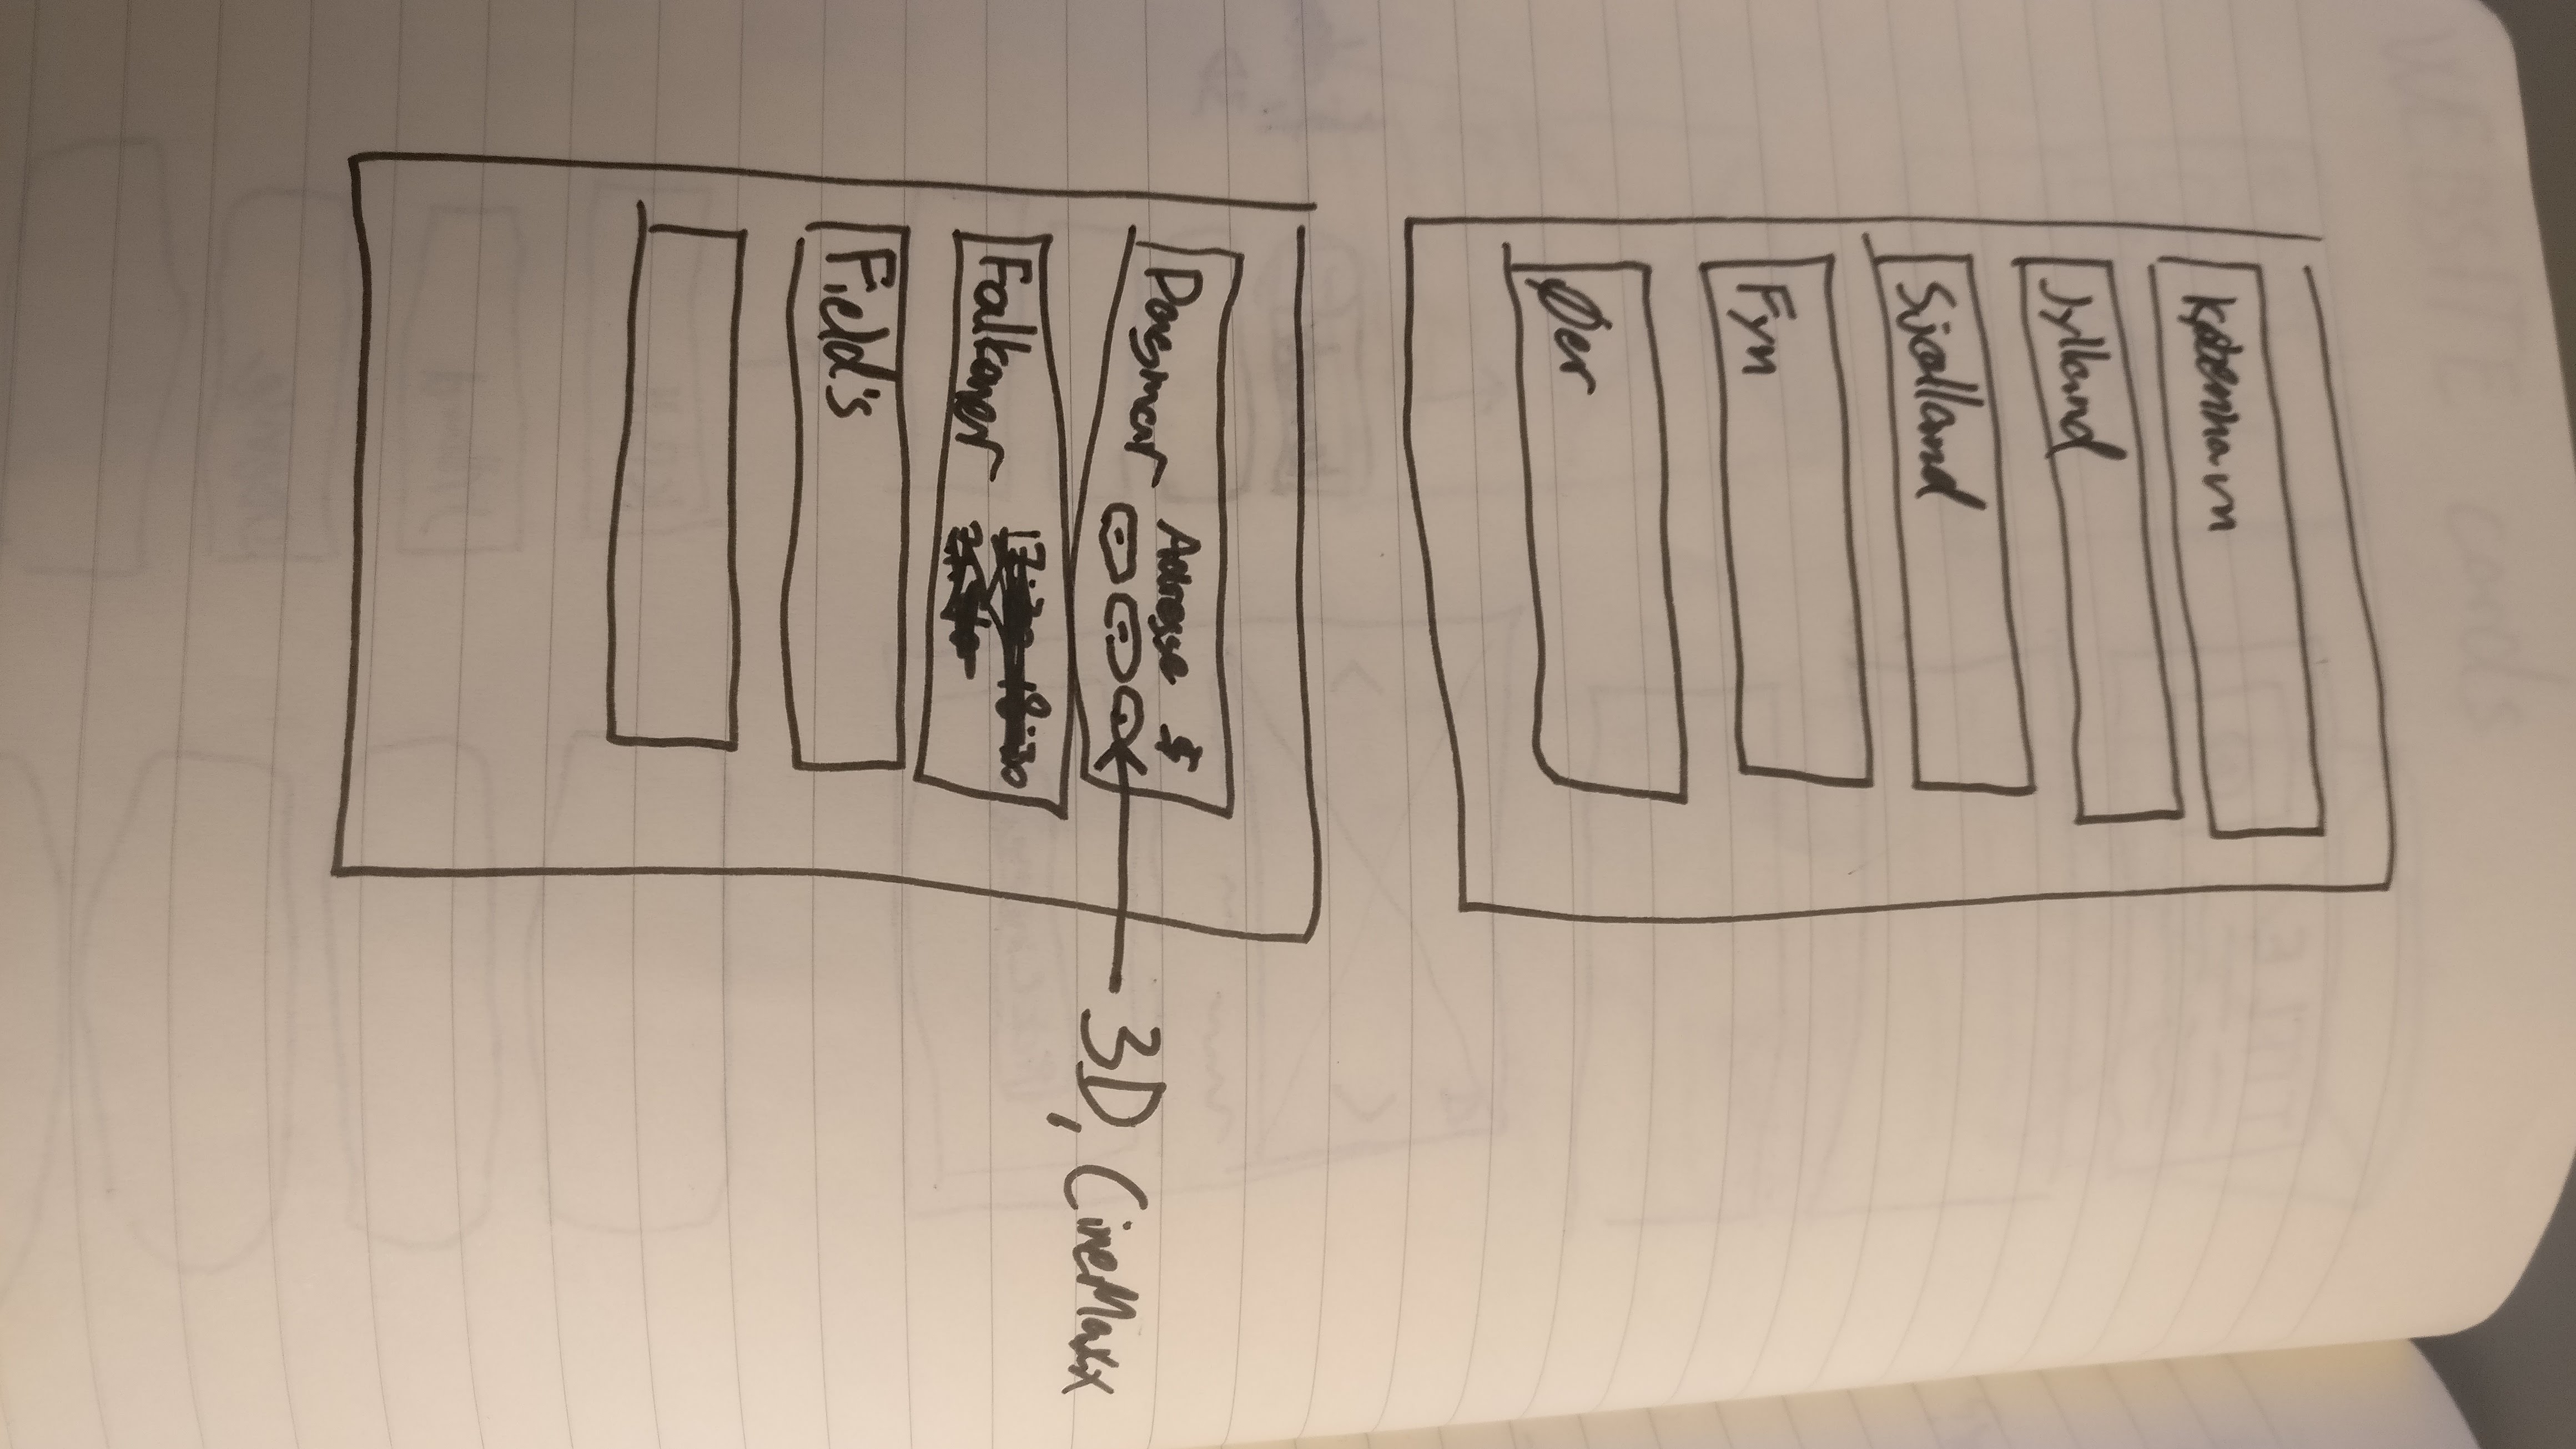 WEBSITE cards
København
Jylland
Sjælland
Fyn
Øer
Dagmar Adresse $
3D, CineMaxx
Falkoner 17:30 18:30
Field's